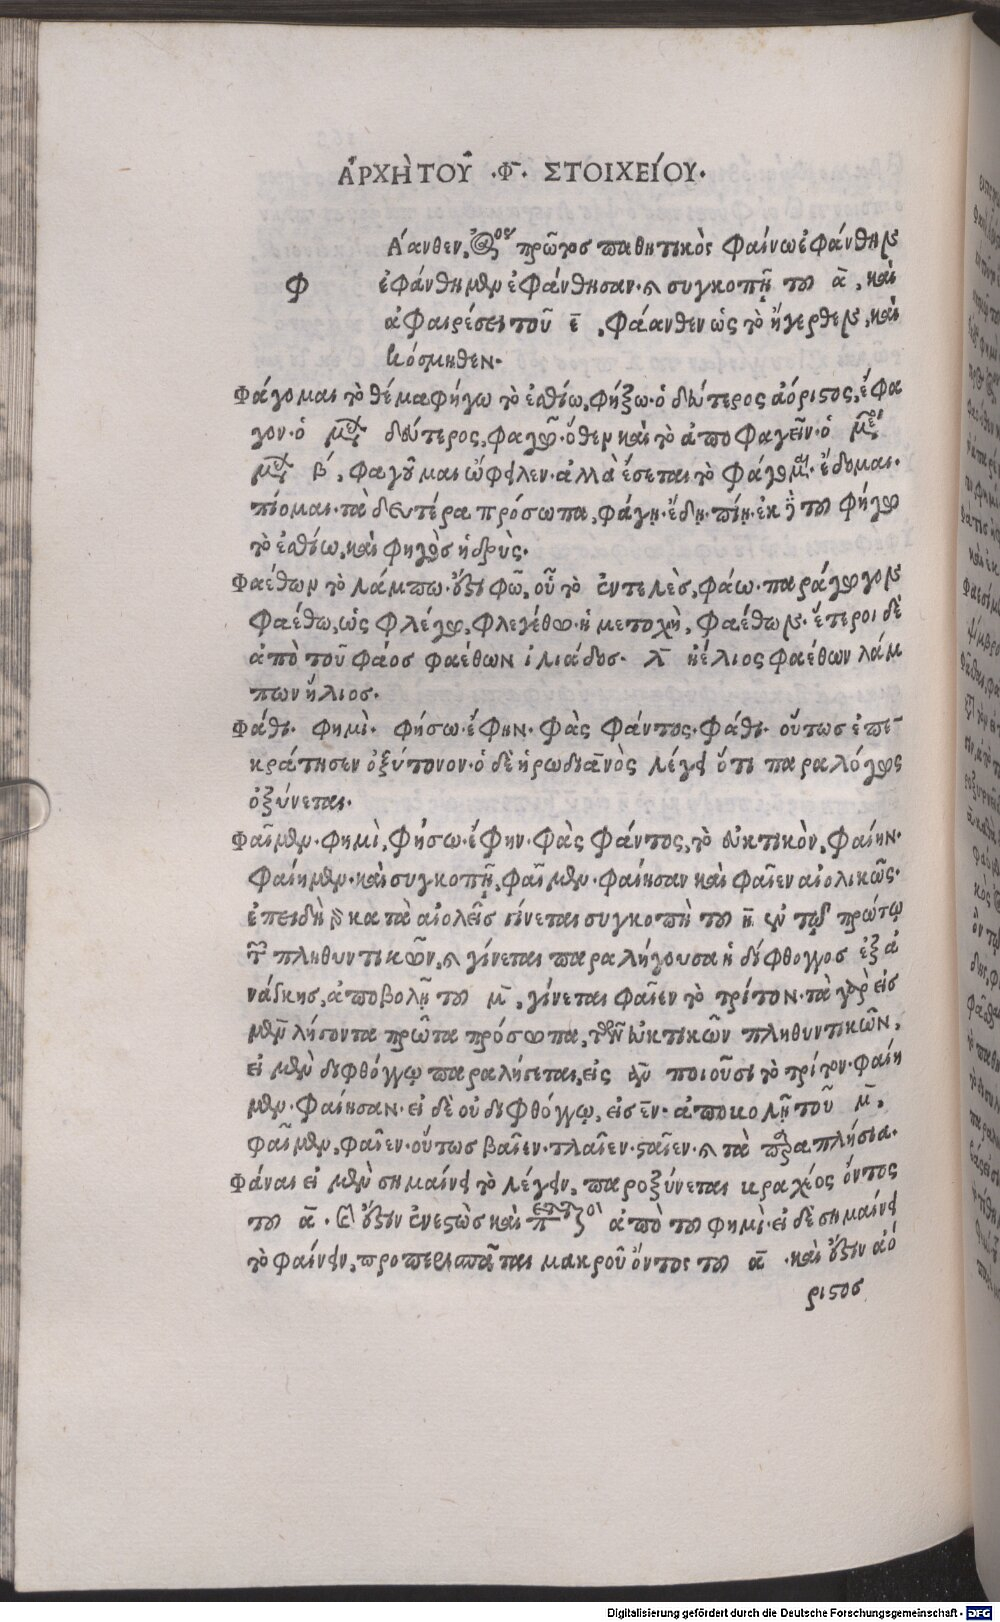 ἈΡΧῊ ΤΟΥ͂ ·Φ̄· ΣΤΟΙΧΕΊΟΥ·
Φ
Άανθεν, πρῶτος παθητικὸς φαίνω ἐφάνθην
ἐφάνθημεν ἐφάνθησαν· συγκοπῇ τοῦ ᾱ, καὶ
ἀφαιρέσει τοῦ ε̄, φάανθεν ὡς τὸ ἤγερθεν, καὶ
κόσμηθεν·
Φάγομαι τὸ θέμα φήγω τὸ ἐσθίω, φήξω· ὁ δεύτερος ἀόριστος, ἔφα
γον· ὁ δεύτερος, φαγῶ· ὅθεν καὶ τὸ ἀποφαγεῖν· ὁ
β΄, φαγοῦμαι ὤφειλεν· ἀλλὰ ἔσεται τὸ φάγομαι· ἔδομαι·
πίομαι· τὰ δευτέρα πρόσωπα, φάγῃ· ἔδῃ· πίῃ· ἐκ τοῦ φήγω
τὸ ἐσθίω, καὶ φηγὸς ἡ δρῦς·
Φαέθων τὸ λάμπω· ἔστι φῶ, οὗ τὸ ἐντελὲς, φάω· παράγωγον
φαέθω, ὡς φλέγω, φλεγέθω· ἡ μετοχὴ, φαέθων· ἕτεροι δὲ
ἀπὸ τοῦ φάος φαέθων ἰλιάδος· λ̄ ἠέλιος φαέθων λάμ
πων ἥλιος·
Φάθι· φημὶ· φήσω· ἔφην· φὰς φάντος· φάθι· οὕτως ἐπε
κράτησεν ὀξύτονον· ὁ δὲ ἡρωδιανὸς λέγει ὅτι παραλόγως
ὀξύνεται·
Φαῖμεν· φημὶ, φήσω· ἔφην· φὰς φάντος, τὸ εὐκτικὸν, φαίην·
φαίημεν· καὶ συγκοπῇ, φαῖμεν· φαίησαν καὶ φαῖεν αἰολικῶς·
ἐπειδὴ κατὰ αἰολεῖς γίνεται συγκοπὴ τοῦ η̄ ἐν τῷ πρώτῳ
τῶν πληθυντικῶν, γίνεται παραλήγουσα ἡ δίφθογγος ἐξ ἀ
νάγκης, ἀποβολῇ τοῦ μ̄, γίνεται φαῖεν τὸ τρίτον· τὰ γὰρ εἰς
μεν λήγοντα πρῶτα πρόσωπα, τῶν εὐκτικῶν πληθυντικῶν,
εἰ μὲν διφθόγγῳ παραλήγεται, εἰς ποιοῦσι τὸ τρίτον· φαίη
μεν· φαίησαν· εἰ δὲ οὐ διφθόγγῳ, εἰς ε̄ν· ἀποκολῇ τοῦ μ̄,
φαῖμεν, φαῖεν· οὕτως βαῖεν· τλαῖεν· σταῖεν· τὰ παραπλήσια·
Φάναι εἰ μὲν σημαίνει τὸ λέγειν, παροξύνεται κραχέος ὄντος
τοῦ ᾱ· ἔστιν ἐνεστὼς καὶ ἀπὸ τοῦ φημὶ· εἰ δὲ σημαίνει
τὸ φαίνειν, προπερισπᾶται μακροῦ ὄντος τοῦ ᾱ· καὶ ἔστιν ἀό
ριστος
Digitalisierung gefördert durch die Deutsche Forschungsgemeinschaft - DFG